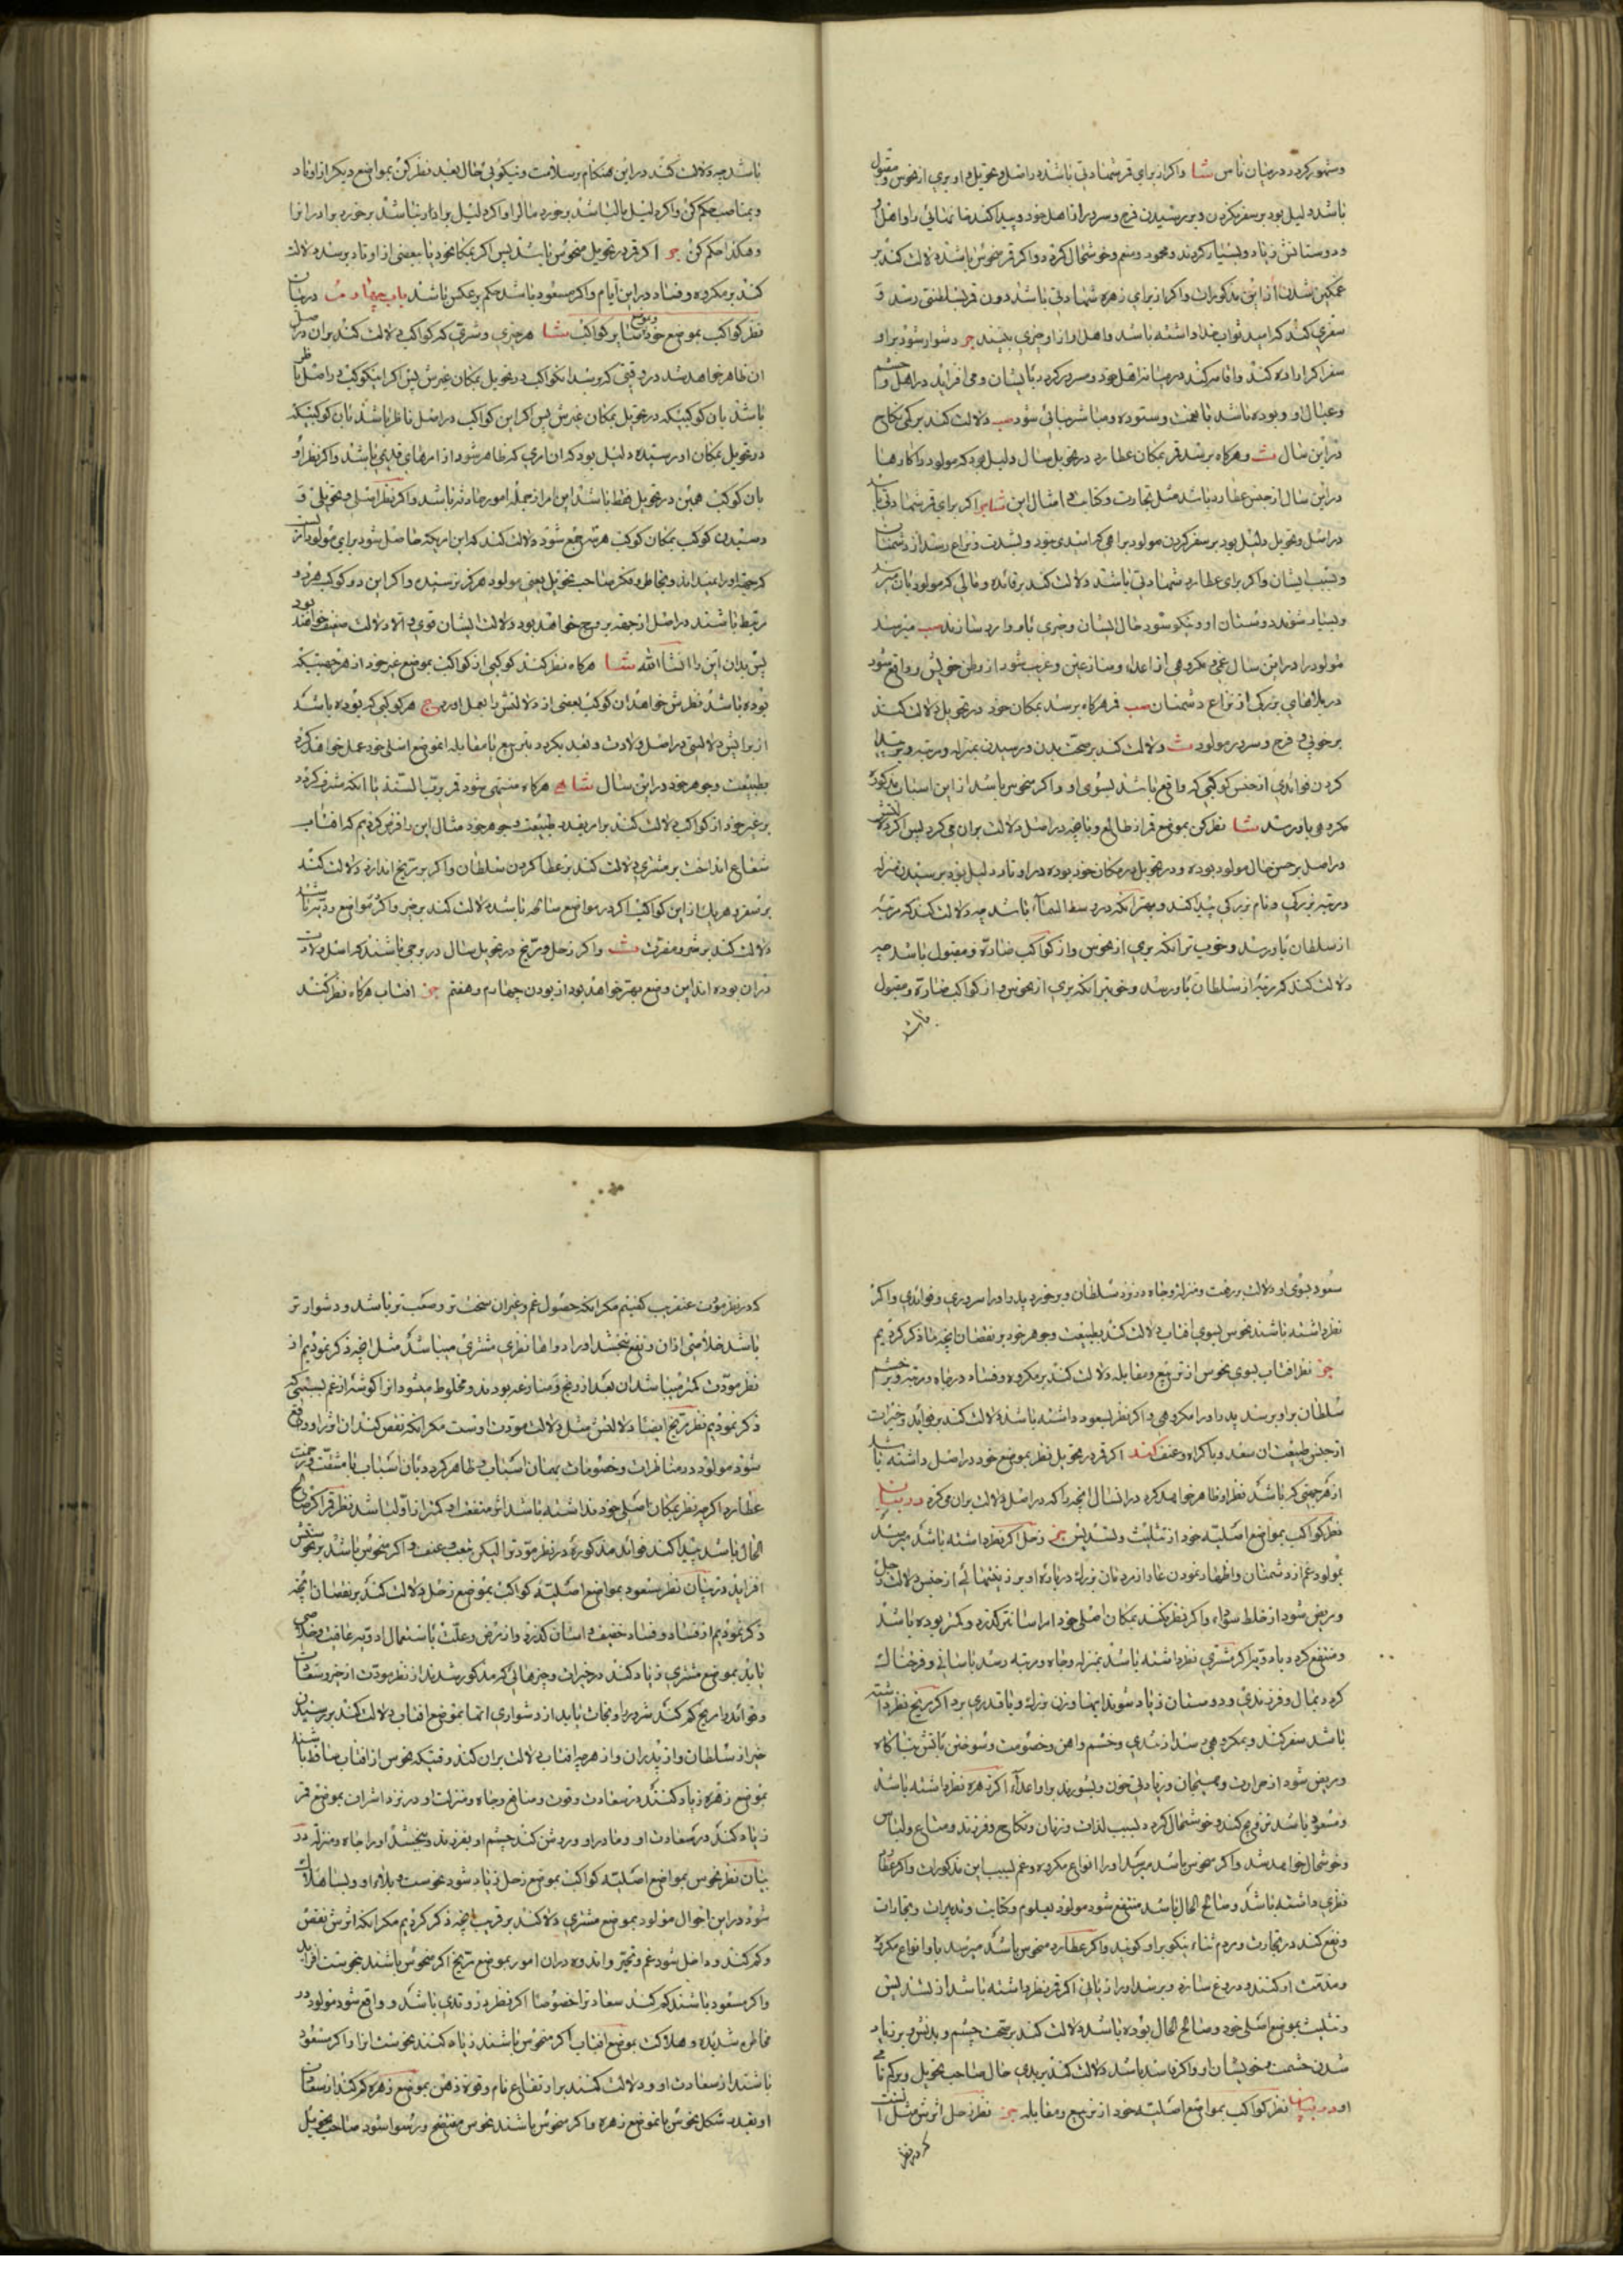 ومشهور کردد در میان ناس شا واکر از برای قمر شهادتی باشد در اصل و تحویل و او بری از نحوس و مقبول
باشد دلیل بود بر سفر نکردن و بر رسیدن فرح و سرور از اهل خود و پیدا کند
و دوستانش زیاد و بسیار کردند و محمود و منعم و خوشحال کردد و اکر قمر منحوس باشد دلالت کند بر
غمکین شدن از این مذکورات و اکر از برای زهره شهادتی باشد دون قمر
سفری کند که امید ثواب خدا داشته باشد و اهل او از او چیزی بینند جر دشوار شود بر او
سفر اکر اراده کند و اقامه کند در میانه اهل خود و مسرور کردد بایشان و می افزاید در اهل و حشم
و عیال او و بوده باشد با عفت و ستوده و مباشر مبانی شود صب دلالت کند بر کمی نکاح
در این سال ث و هرکاه برسد قمر بمکان عطارد در تحویل سال دلیل بود که مولود را کارها
در این سال از جنس عطارد باشد مثل تجارت و کتابت و امثال این شا اکر برای قمر شهادتی باشد
در اصل و تحویل دلیل بود بر سفر کردن مولود براهی که راسدی خود و بشدت و نزاع رسد از دشمنان
و بسبب ایشان و اکر برای عطارد شهادتی باشد دلالت کند بر فائده و مالی که مولود بان میرسد
و بسیار شوند دوستان او و نیکو شود حال ایشان و خیری باو وارد سازند صب میرسد
مولود را در این سال غمی و مکروهی از اعداء و منازعین و غریب شود از وطن خویش و واقع شود
در بلاهای بزرکی از نزاع دشمنان صب قمر هرکاه برسد بمکان خود در تحویل دلالت کند
بر خوبی و فرح و سرور مولود ث دلالت کند بر صحت بدن و رسیدن بمنزله و مرتبه و بر پیدا
کردن فوائدی از جنس کوکبی که واقع باشد بسوی او و اکر منحوس باشد از این اسباب مذکوره
مکروهی باو رسد شا نظر کن بموضع قمر از طالع و بانچه در اصل دلالت بر ان می کرد پس اکر دلالتش
در اصل بر حسن حال مولود بوده و در تحویل در مکان خود بوده در اوتاد دلیل بود بر رسیدن بمنزله
و مرتبه بزرکی و نام بزرکی پیدا کند و بهتر آنکه در وسط السماء باشد چه دلالت کند که مرتبه
از سلطان باو رسد و خوب تر آنکه بری از نحوس و از کواکب ضارّه و مقبول باشد چه
دلالت کند که مرتبه از سلطان باو رسد و خوبتر آنکه بری از نحوس و از کواکب ضارّه و مقبول
باشد
باشد چه دلالت کند در این هنکام بر سلامت و نیکوئی حال بعد نظر کن بمواضع دیکر از اوتاد
و بمناصب حکم کن و اکر دلیل مال باشد بر خورد مال را و اکر دلیل برادر باشد بر خورد برادر انرا
و هکذا حکم کن جر اکر قمر در تحویل منحوس باشد پس اکر بمکان خود یا ببعضی از اوتاد برسد دلالت
کند بر مکروه و فساد در این ایام و اکر مسعود باشد حکم بر عکس باشد باب چهارم در بیان
نظر کواکب بموضع خود و بموضع سایر کواکب شا هر چیزی و شرفی که کواکب دلالت کند بر ان در اصل
ان ظاهر خواهد شد در وقتی که برسد ان کواکب در تحویل بمکان غیرش پس اکر این کوکب در اصل ناظر
باشد بان کوکبیکه در تحویل بمکان غیرش پس اکر این کواکب در اصل ناظر باشد بان کوکبیکه
در تحویل بمکان او رسیده دلیل بود که ان امری که ظاهر شود از امرهای قدیمی باشد و اکر نظر او
بان کوکب همین در تحویل فقط باشد این امر از جمله امور حادثه باشد و اکر نظر اصلی و تحویلی و
رسیدن کوکب بمکان کوکب هر سه جمع شود دلالت کند که این امریکه حاصل شود برای مولود امریست
پس بدان این را انشاالله شا هرکاه نظر کند کوکبی از کواکب بموضع غیر خود از هر جهتیکه
بوده باشد نظرش خواهد ان کوکب بعضی از دلالتش را بعمل اورد ج هر کوکبی که بوده باشد
از برایش دلالتی در اصل ولادت و بعد بکردد بتربیع یا مقابله انموضع اصلی خود عمل خواهد کرد
بطبیعت و جوهر خود در این سال شا هرکاه منتهی شود قمر برب السنه یا انکه مشرف کردد
بر غیر خود از کواکب دلالت کند بر امر بقدر طبیعت و جوهر خود مثال این را فرض کردیم که افتاب
شعاع انداخت بر مشتری دلالت کند بر عطا کردن سلطان و اکر بر مریخ اندازد دلالت کند
بر سفر و هر یک از این کواکب اکر در مواضع صالحه باشد دلالت کند بر خیر و اکر مواضع ردیه باشد
دلالت کند بر شر و مضرت ث و اکر زحل و مریخ در تحویل سال در برجی باشند که در اصل ولادت
در ان بوده اند این وضع بهتر خواهد بود از بودن چهارم و هفتم جر افتاب هرکاه نظر کنند
سعود بسوی او دلالت بر رفعت و منزله و جاه در نزد سلطان و بر خورد پدر او را سروری و فوائدی و اکر
نظر داشته باشند نحوس بسوی افتاب دلالت کند بطبیعت و جوهر خود بر نقصان انچه ما ذکر کردیم
جر نظر افتاب بسوی نحوس از تربیع و مقابله دلالت کند بر مکروه و فساد در جاه و مرتبه و بر خشم
سلطان بر او برسد پدر او را مکروهی و اکر نظر بسعود داشته باشد دلالت کند بر فوائد و خیرات
از جنس طبیعت ان سعد و باکراه و عنف کند اکر قمر در تحویل نظر بموضع خود در اصل داشته باشد
از هر جهتی که باشد نظر او ظاهر خواهد کرد در انسال انچه را که در اصل دلالت بر ان می کرد در بیان
نظر کواکب بمواضع اصلیه خود از تثلیث و تسدیس جر زحل اکر نظر داشته باشد میرسد
بمولود غم از دشمنان و اظهار نمودن
و مریض شود از خلط سوداء و اکر نظر نکند بمکان اصلی خود امر اسانتر کذرد و کمتر بوده باشد
و منتفع کردد باد ویه اکر مشتری نظر داشته باشد بمنزله و جاه و مرتبه رسد باسانی و فرحناک
کردد بمال و فرزندی و دوستان زیاد شوند
باشد سفر کند و بمکروهی رسد از تندی و خشم و اهن و خصومت و سوختن باتش
و مریض شود از حرارت و هیجان و زیادتی خون و بشورند بر او اعداء اکر زهره نظر داشته باشد
و مسعود باشد تزویج کند و خوشحال کردد بسبب لذات و زنان و نکاح و فرزند و متاع و لباس
و خوشحال خواهد شد و اکر منحوس باشد میرسد او را انواع مکروه و غم بسبب این مذکورات و اکر عطارد
نظری داشته باشد و صالح الحال باشد منتفع شود مولود بعلوم و کتابت و تدبیرات و تجارات
و نفع کند در تجارت و مردم ثناء نیکو بر او کویند و اکر عطارد منحوس باشد میرسد باو انواع مکروه
و مذمت او کنند و دروغ سازند و برسد او را زیانی اکر قمر نظر داشته باشد از تسدیس
و تثلیث بموضع اصلی خود و صالح الحال بوده باشد دلالت کند بر صحت جسم و بدنش و بر زیاد
شدن حشمت و خویشان او و اکر فاسد باشد دلالت کند بر بدی حال صاحب تحویل و بر کم نامی
او در بیان نظر کواکب بمواضع اصلیه خود از تربیع و مقابله جر نظر زحل اثرش مثل انست
که در نظر
که در نظر مودت عنقریب کفتیم مکر انکه حصول غم و غیر ان سخت تر و صعب تر باشد و دشوار تر
باشد خلاصی از ان و نفع بخشد او را دواها نظر مشتری میباشد مثل انچه ذکر نمودیم از
نظر مودت کمتر میباشد ان بعد از رنج و منازعه بودند و مخلوط میشود
ذکر نمودیم نظر مریخ ایضا دلالتش مثل دلالت مودت اوست مکر انکه نقص کند
شود مولود در مناظرات و خصومات بهمان اسباب و ظاهر کردد بان اسباب با مشقت و زحمت
عطارد اکر چه نظر بمکان اصلی خود نداشته باشد اثر منفعت او کمتر از اول باشد نظر قمر اکر صالح
الحال باشد پیدا کند فوائد مذکوره در نظر مودت را لیکن بتعب و عنف و اکر منحوس باشد بر نحوستش
افزاید در بیان نظر سعود بمواضع اصلیه کواکب بموضع زحل دلالت کند بر نقصان انچه
ذکر نمودیم از فساد و فساد خفیف و اسان کذرد و از مرض و علت باستعمال ادویه عافیت و خلاصی
یابد بموضع مشتری زیاد کند در خیرات و چیزهائی که مذکور شدند از نظر مودت از خیر و سعادت
و فوائد و امر مریخ کم کند شرور را و نجات یابد از دشواری انها بموضع افتاب دلالت کند بر رسیدن
خیر از سلطان و از پدران و از هر چه افتاب دلالت بر ان کند وقتیکه نحوس از افتاب ساقط باشند
بموضع زهره زیاد کنند در سعادت و قوت و منافع و جاه و منزلت او در نزد اشراف بموضع قمر
زیاد کند در سعادت او و مادر او و روشن کند چشم او بفرزند و ببخشد او را جاه و منزله در
بیان نظر نحوس بمواضع اصلیه کواکب بموضع زحل زیاد شود نحوست و بلاء او و بسا هلاک
شود در این احوال مولود بموضع مشتری دلالت کند بر قریب انچه ذکر کردیم مکر انکه اثرش نقص
و کم کند و داخل شود غم و تحیر و اندوه در ان امور بموضع مریخ اکر منحوس باشند بنحوست افزاید
و اکر مسعود باشند کم کند سعادت را خصوصا اکر نظر در وتدی باشد و واقع شود مولود در
مخاطره شدیده و هلاکت بموضع افتاب اکر منحوس باشند زیاد کنند نحوست انرا و اکر مسعود
باشند از سعادت او و دلالت کنند بر ارتفاع نام و قوة ذهن بموضع زهره کم کند از سعادت
او بقدر شکل نحوس با موضع زهره و اکر منحوس باشند نحوس مفتضح و رسوا شود صاحب تحویل